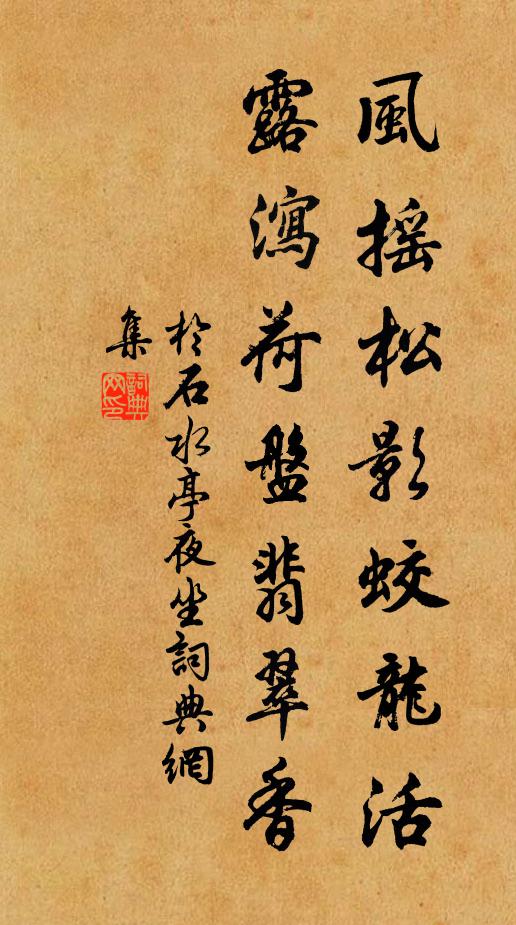 風搖松影蛟龍活
露瀉荷盤翡翠香
於石水亭夜坐詞典網
集
詞典
网印